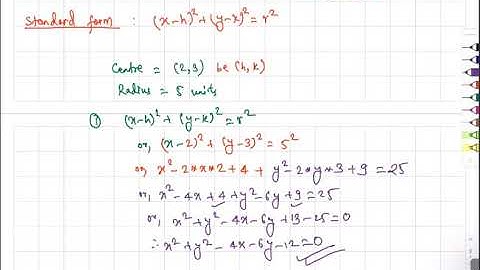 Standard form : (x-h)²+(y-k)²=r²
Centre = (2,3) be (h,k)
Radius = 5 units
① (x-h)² + (y-k)²=r²
or, (x-2)² + (y-3)² = 5²
or, x²-2*x*2+4 + y²-2*y*3+9 = 25
or, x²-4x+4+y²-6y+9=25
or, x²+y²-4x-6y+13-25=0
∴ x²+y²-4x-6y-12=0